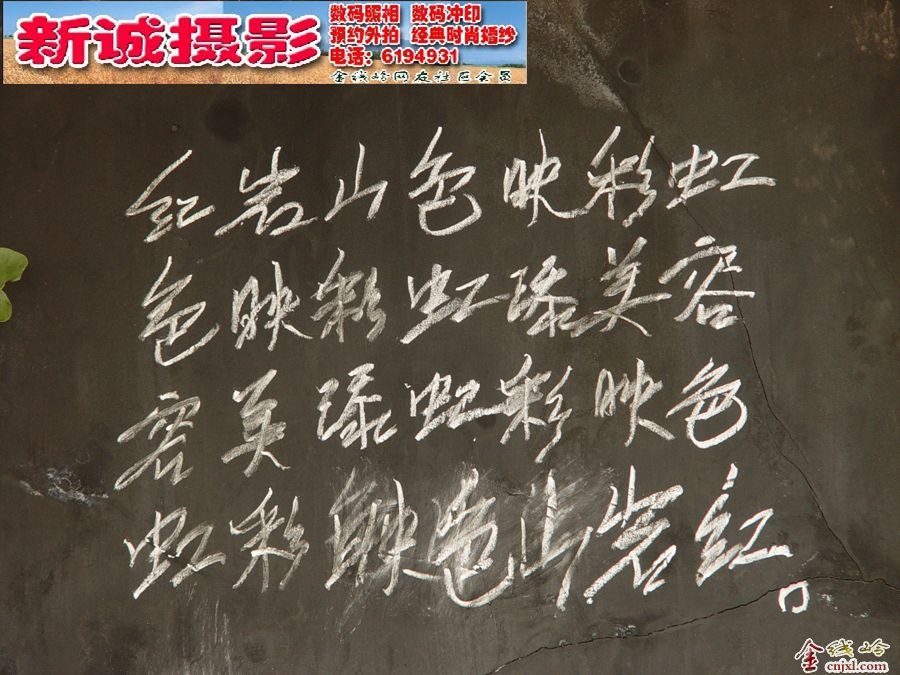 新诚摄影
数码照相 数码冲印
预约外拍 经典时尚婚纱
电话：6194931
金线岭网友社区会员
红岩山色映彩虹
色映彩虹添美容
容美添虹彩映色
虹彩映色山岩红。
金线岭
cnjxl.com